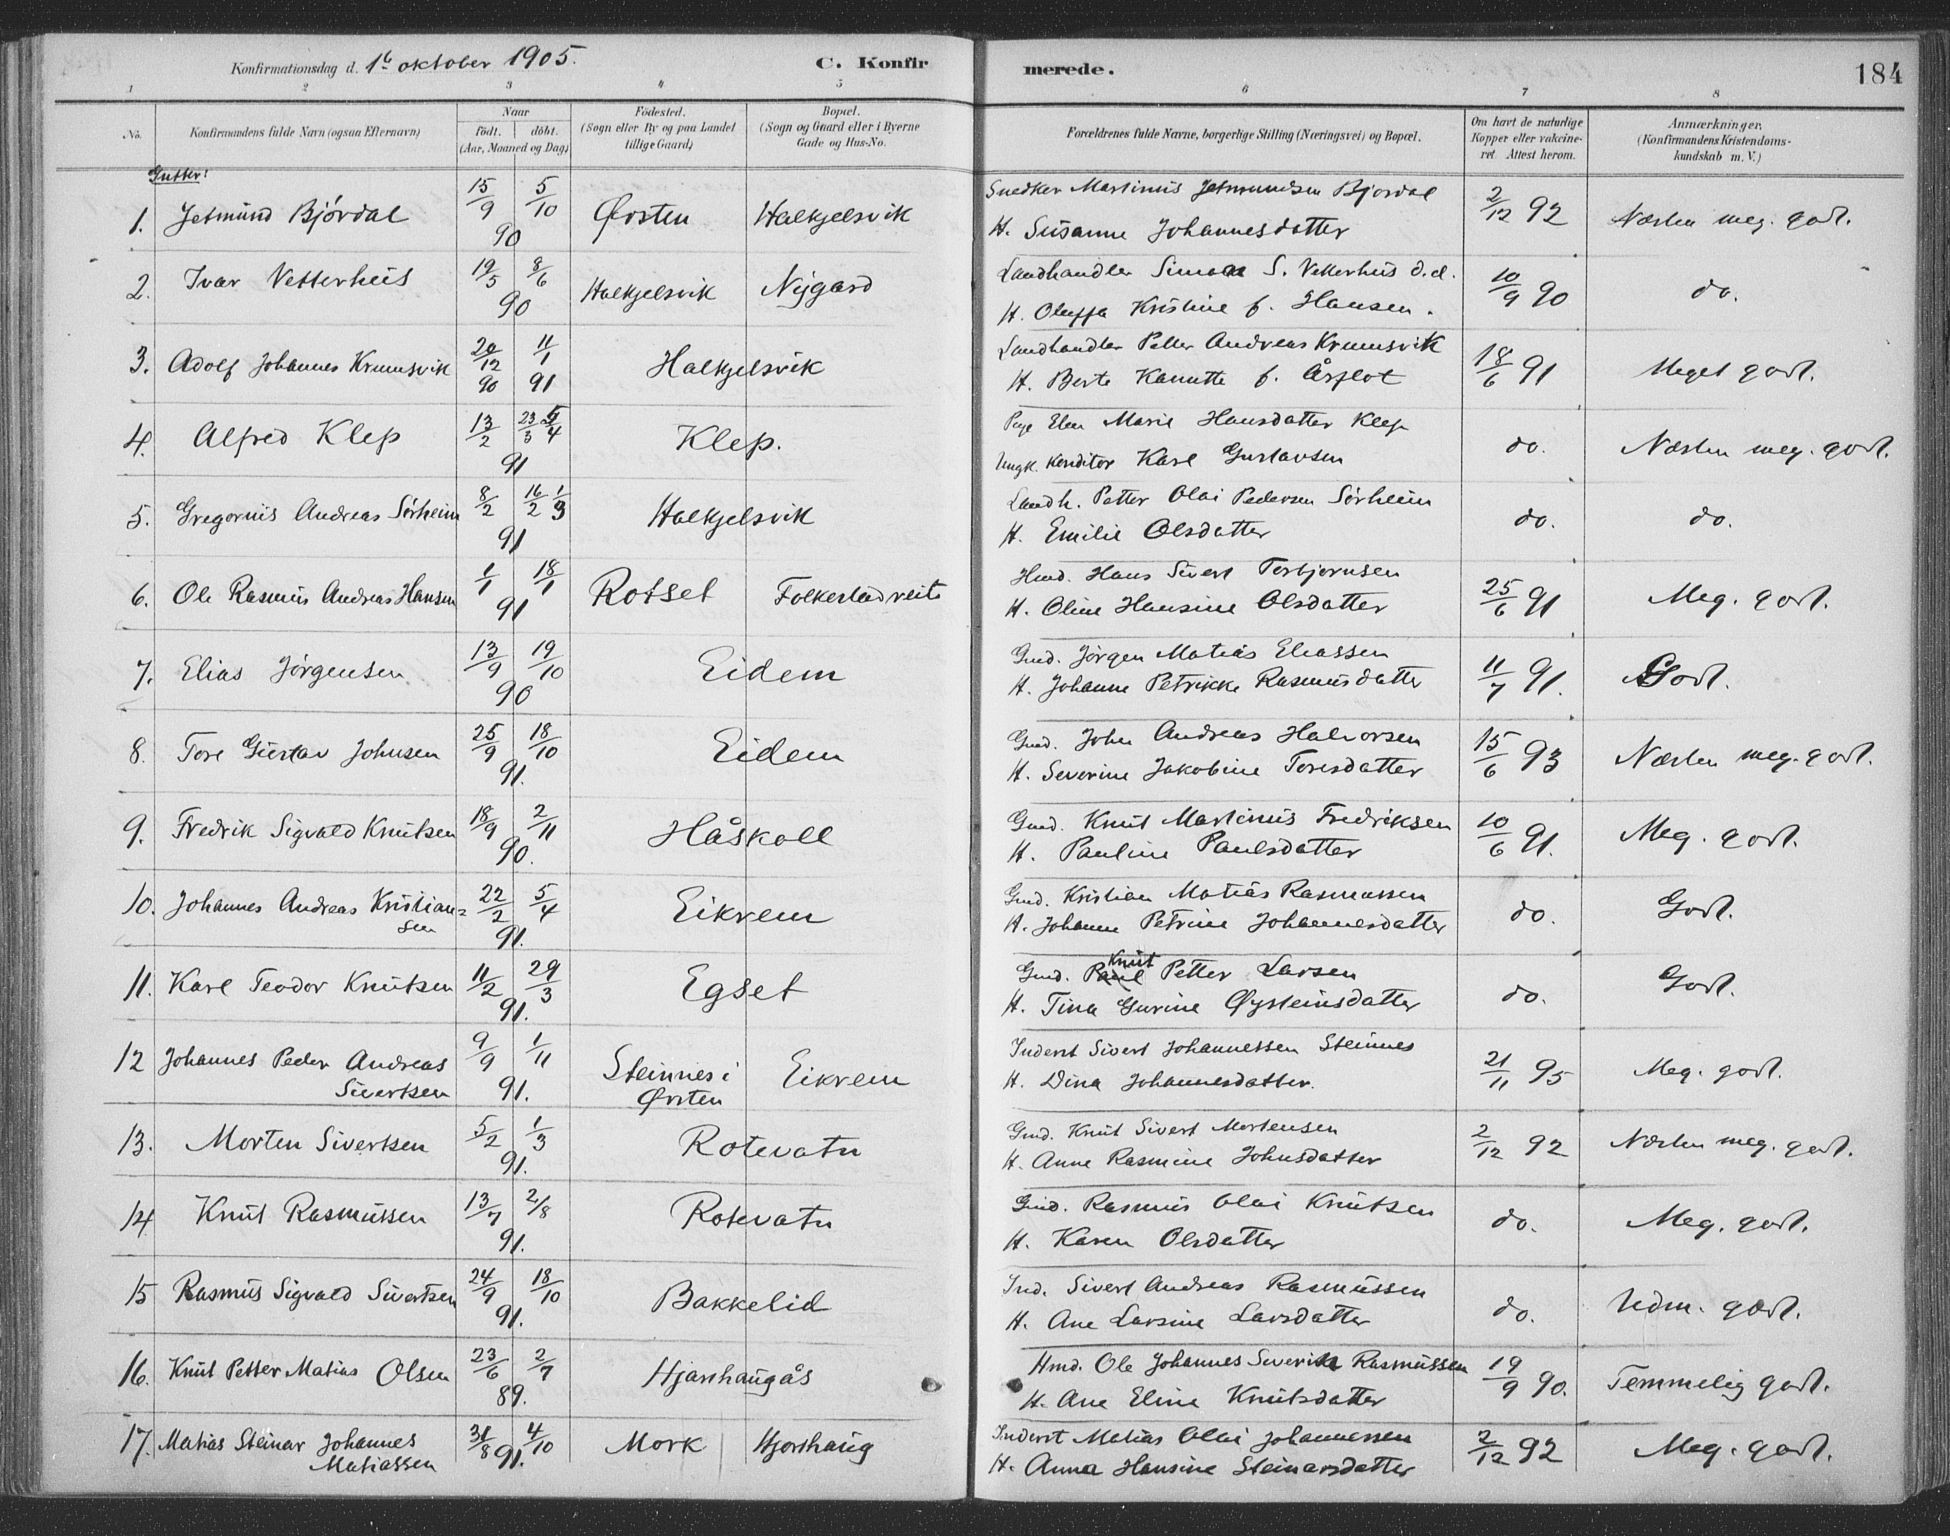 Konfirmationsdag d. 1ste oktober 1905. C. Konfirmerede. 184
1 2 3 4 5 6 7 8
No. Konfirmandens fulde Navn (ogsaa Efternavn) Naar födt. döbt. (Aar, Maaned og Dag) Födested. (Sogn eller By og paa Landet tillige Gaard) Bopæl. (Sogn og Gaard eller i Byerne Gade og Hus-No. Forældrenes fulde Navne, borgerlige Stilling (Næringsvei) og Bopæl. Om havt de naturlige Kopper eller vakcineret Attest herom. Anmærkninger. (Konfirmandens Kristendomskundskab m. V.)
Gutter:
1. Jetmund Björdal 15/9 5/10 90 Örsten Halkjelsvik Snedker Martinus Jetmundsen Bjordal
H. Susanne Johannesdatter 2/12 92 Næsten meg. godt.
2. Ivar Vetterhus 19/5 8/6 90 Halkjelsvik Nygard Landhandler Simon S. Vetterhus d.d.
H. Oluffa Kristine f. Hansen. 10/9 90 do.
3. Adolf Johannes Krumsvik 20/12 90 11/1 91 Halkjelsvik Landhandler Petter Andreas Krumsvik
H. Berte Kanutte f. Årflot 18/6 91 Meget godt.
4. Alfred Klep 13/2 23/3 5/4 91 Klep. Pige Elen Marie Hansdatter Klep
Ungk. Konditor Karl Gustavsen do. Næsten meg. godt.
5. Gregorius Andreas Sörheim 8/2 16/2 1/3 91 Halkjelsvik Landh. Petter Olai Pedersen Sörheim
H. Emilie Olsdatter do. do.
6. Ole Rasmus Andreas Hansen 1/1 18/1 91 Rotset Folkestadreite Hmd. Hans Sivert Torbjörnsen
H. Oline Hansine Olsdatter 25/6 91 Meg. godt.
7. Elias Jörgensen 13/9 19/10 90 Eidem Gmd. Jörgen Matias Eliassen
H. Johanne Petrikke Rasmusdatter 11/7 91. Godt.
8. Tore Gustav Johnsen 25/9 18/10 91. Eidem Gmd. John Andreas Halvorsen
H. Severine Jakobine Toresdatter 15/6 93 Næsten meg. godt.
9. Fredrik Sigvald Knutsen 18/9 2/11 90. Håskoll Gmd. Knut Martinus Fredriksen
H. Pauline Paulsdatter 10/6 91. Meg. godt.
10. Johannes Andreas Kristian=
sen 22/2 5/4 91. Eikrem Gmd. Kristian Matias Rasmussen
H. Johanne Petrine Johannesdatter do. Godt.
11. Karl Teodor Knutsen 11/2 29/3 91. Egset Gmd. Paul Knut Petter Larsen
H. Tina Gurine Øysteinsdatter do. Godt.
12 Johannes Peder Andreas
Sivertsen 9/9 1/11 91. Steinnes i Örsten Eikrem Inderst Sivert Johannessen Steinnes
H. Dina Johannesdatter. 21/11 95 Meg. godt.
13. Morten Sivertsen 5/2 1/3 91. Rotevatn Gmd. Knut Sivert Mortensen
H. Anne Rasmine Johnsdatter 2/12 92 Næsten meg. godt.
14 Knut Rasmussen 13/7 2/8 91. Rotevatn Gmd. Rasmus Olai Knutsen
H. Karen Olsdatter do. Meg. godt.
15 Rasmus Sigvald Sivertsen 24/9 18/10 91. Bakkelid Ind. Sivert Andreas Rasmussen
H. Ane Larsine Larsdatter do. Udm. godt.
16. Knut Petter Matias Olsen 23/6 2/7 89. Hjorthaugås Hmd. Ole Johannes Severin Rasmussen
H. Ane Eline Knutsdatter 19/9 90. Temmelig godt.
17. Matias Steinar Johannes
Matiassen 31/8 4/10 91. Mork Hjorthaug Inderst Matias Olai Johannessen
H. Anna Hansine Steinarsdatter 2/12 92 Meg. godt.